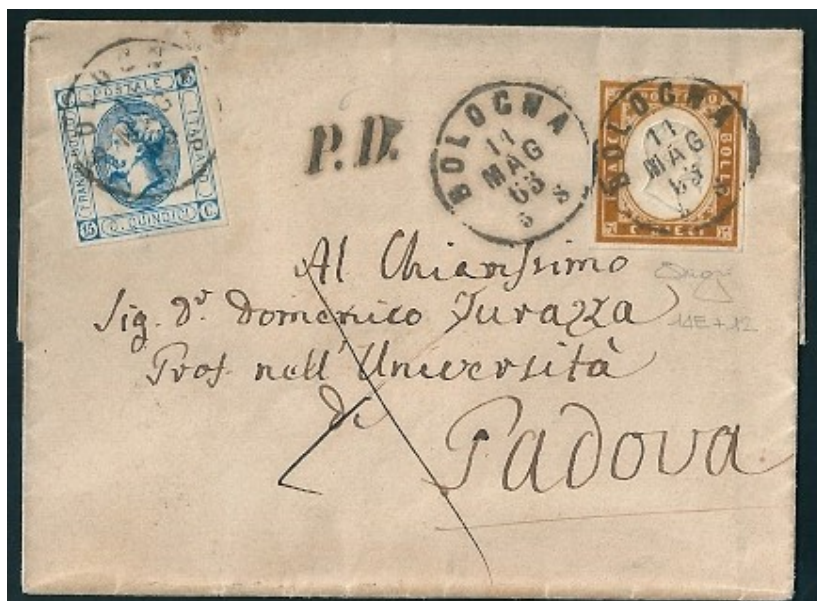 BOLOGNA
FRANCO BOLLO
POSTALE
ITALIANO
C. QUINDICI
15
15
P.D.
BOLOGNA
11
MAG
63
5 S
BOLOGNA
11
MAG
63
Al Chiarissimo
Sig. Dr. Domenico Turazza
Prof. nell' Università
di
Padova
14E + 12